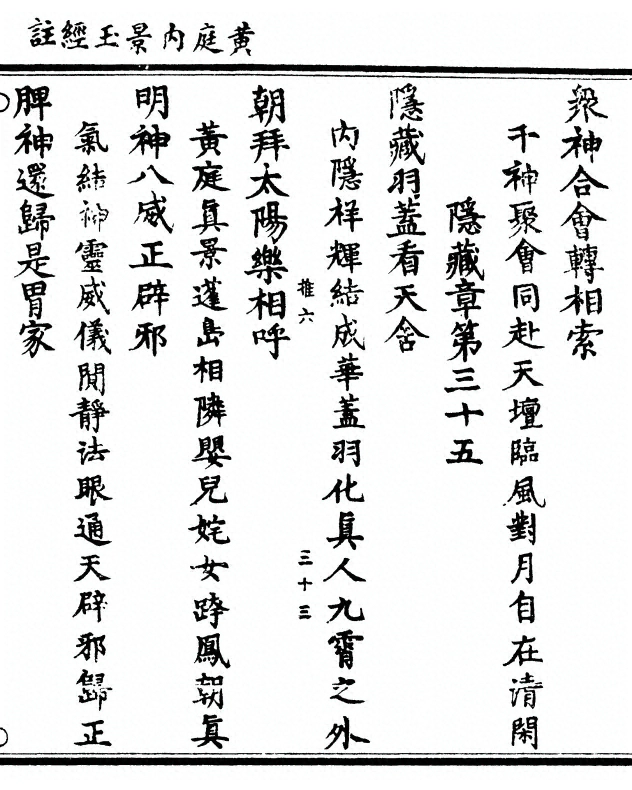 黄庭内景玉經註
衆神合會轉相索
千神聚會同赴天壇臨風對月自在清閑
隱藏章第三十五
隱藏羽蓋看天舍
内隱祥輝結成華蓋羽化真人九霄之外
推六
三十三
朝拜太陽樂相呼
黄庭真景蓬島相隣嬰兒姹女跨鳳朝真
明神八威正辟邪
氣結神靈威儀閒靜法眼通天辟邪歸正
脾神還歸是胃家